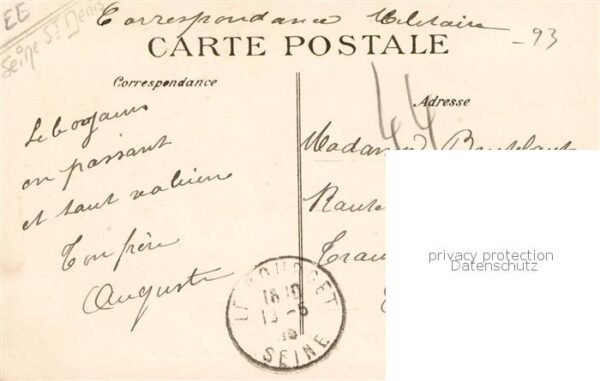 EE
Seine St Denis
Correspondance Militaire
- 93
CARTE POSTALE
Correspondance
Adresse
44
en passant
et tout va bien
Ton frère
Auguste
Madame
Route
LE BOURGET
18 10
13 - 5
SEINE
privacy protection
Datenschutz